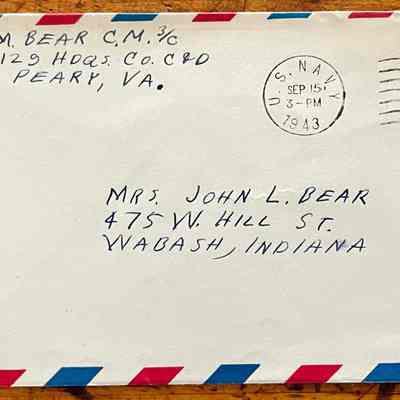 M. BEAR C.M. 3/C
129 HDQS. CO. C&D
PEARY, VA.
U.S. NAVY
SEP 15
3-PM
1943
MRS. JOHN L. BEAR
475 W. HILL ST.
WABASH, INDIANA